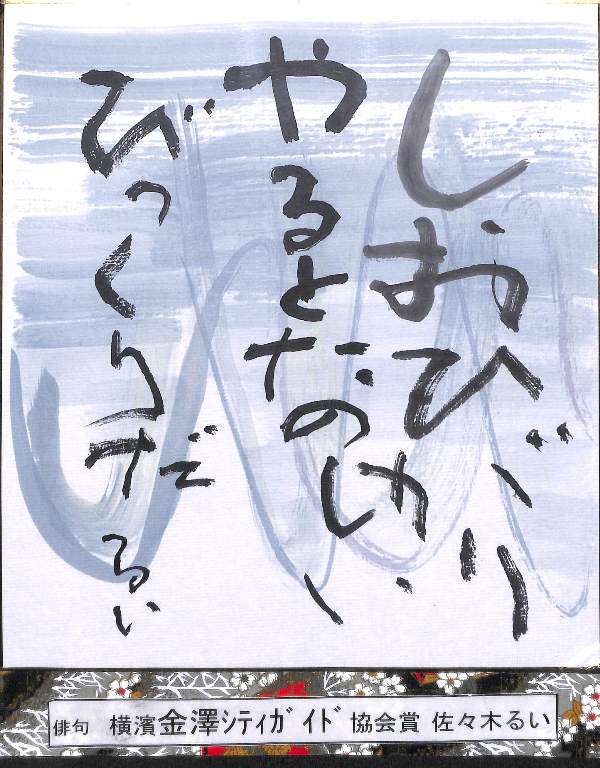 しおひがり
やるとたのしい
びっくりだ るい
俳句 横濱金澤ｼﾃｨｶﾞｲﾄﾞ協会賞 佐々木るい